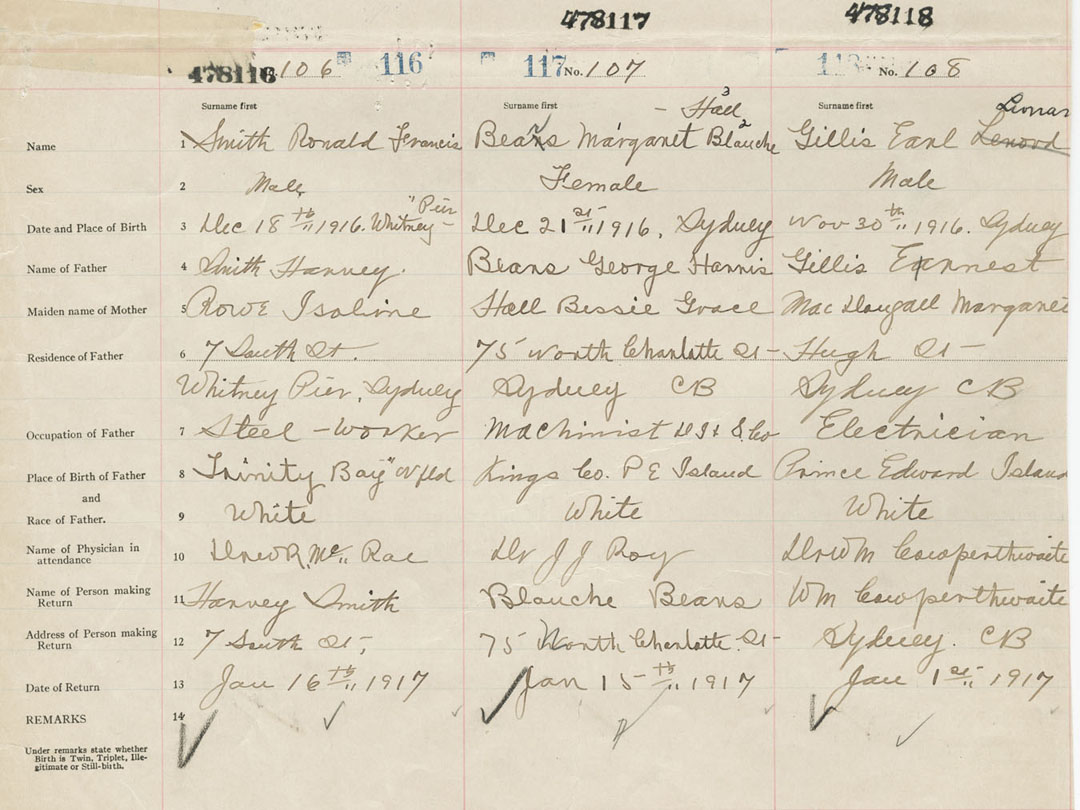 478117 478118
478116 106 116 117 No. 107 113 No. 108
Surname first Surname first Surname first
3
- Hall Lionar
2
Name 1 Smith Ronald Francis Beans Margaret Blauche Gillis Earl Lenord
Sex 2 Male Female Male
"Pier
Date and Place of Birth 3 Dec 18th" 1916. Whitney- Dec 21st" 1916, Sydney Nov 30th" 1916. Sydney
Name of Father 4 Smith Harvey. Beans George Harris Gillis Earnest
Maiden name of Mother 5 Rowe Isoline Hall Bessie Grace MacDougall Margaret
Residence of Father 6 7 South St. 75 North Charlotte St- Hugh St-
Whitney Pier, Sydney Sydney CB Sydney CB
Occupation of Father 7 Steel-worker Machinist D I & S. Co Electrician
Place of Birth of Father 8 Trinity Bay" Nfld Kings Co. P E Island Prince Edward Island
and
Race of Father. 9 White White White
Name of Physician in
attendance 10 Mc" Rae Dr J J Roy Dr Wm Cowperthwaite
Name of Person making
Return 11 Harvey Smith Blauche Beans Wm Cowperthwaite
Address of Person making
Return 12 7 South St, 75 North Charlotte. St- Sydney. CB
Date of Return 13 Jan 16th" 1917 Jan 15th" 1917 Jan 1st" 1917
REMARKS 14
Under remarks state whether
Birth is Twin, Triplet, Ille-
gitimate or Still-birth.